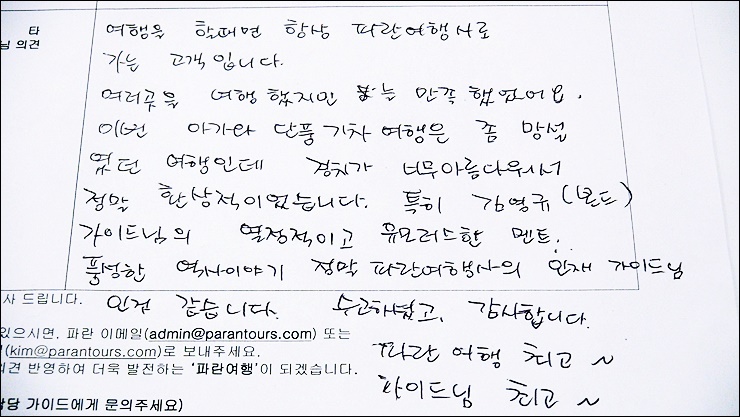 타
님 의견
여행을 할때면 항상 파란여행사로
가는 고객입니다.
여러곳을 여행 했지만 늘 만족 했었어요.
이번 아가와 단풍기차여행은 좀 망설
였던 여행인데 경치가 너무아름다워서
정말 환상적이었습니다. 특히 김영규(본드)
가이드님의 열정적이고 유모러스한 멘트.
풍성한 역사이야기 정말 파란여행사의 인재 가이드님
사 드립니다. 인것 같습니다. 수고하셨고, 감사합니다.
있으시면, 파란 이메일(admin@parantours.com) 또는
(kim@parantours.com)로 보내주세요. 파란여행 최고~
견 반영하여 더욱 발전하는 '파란여행'이 되겠습니다.
가이드님 최고~
담당 가이드에게 문의주세요)